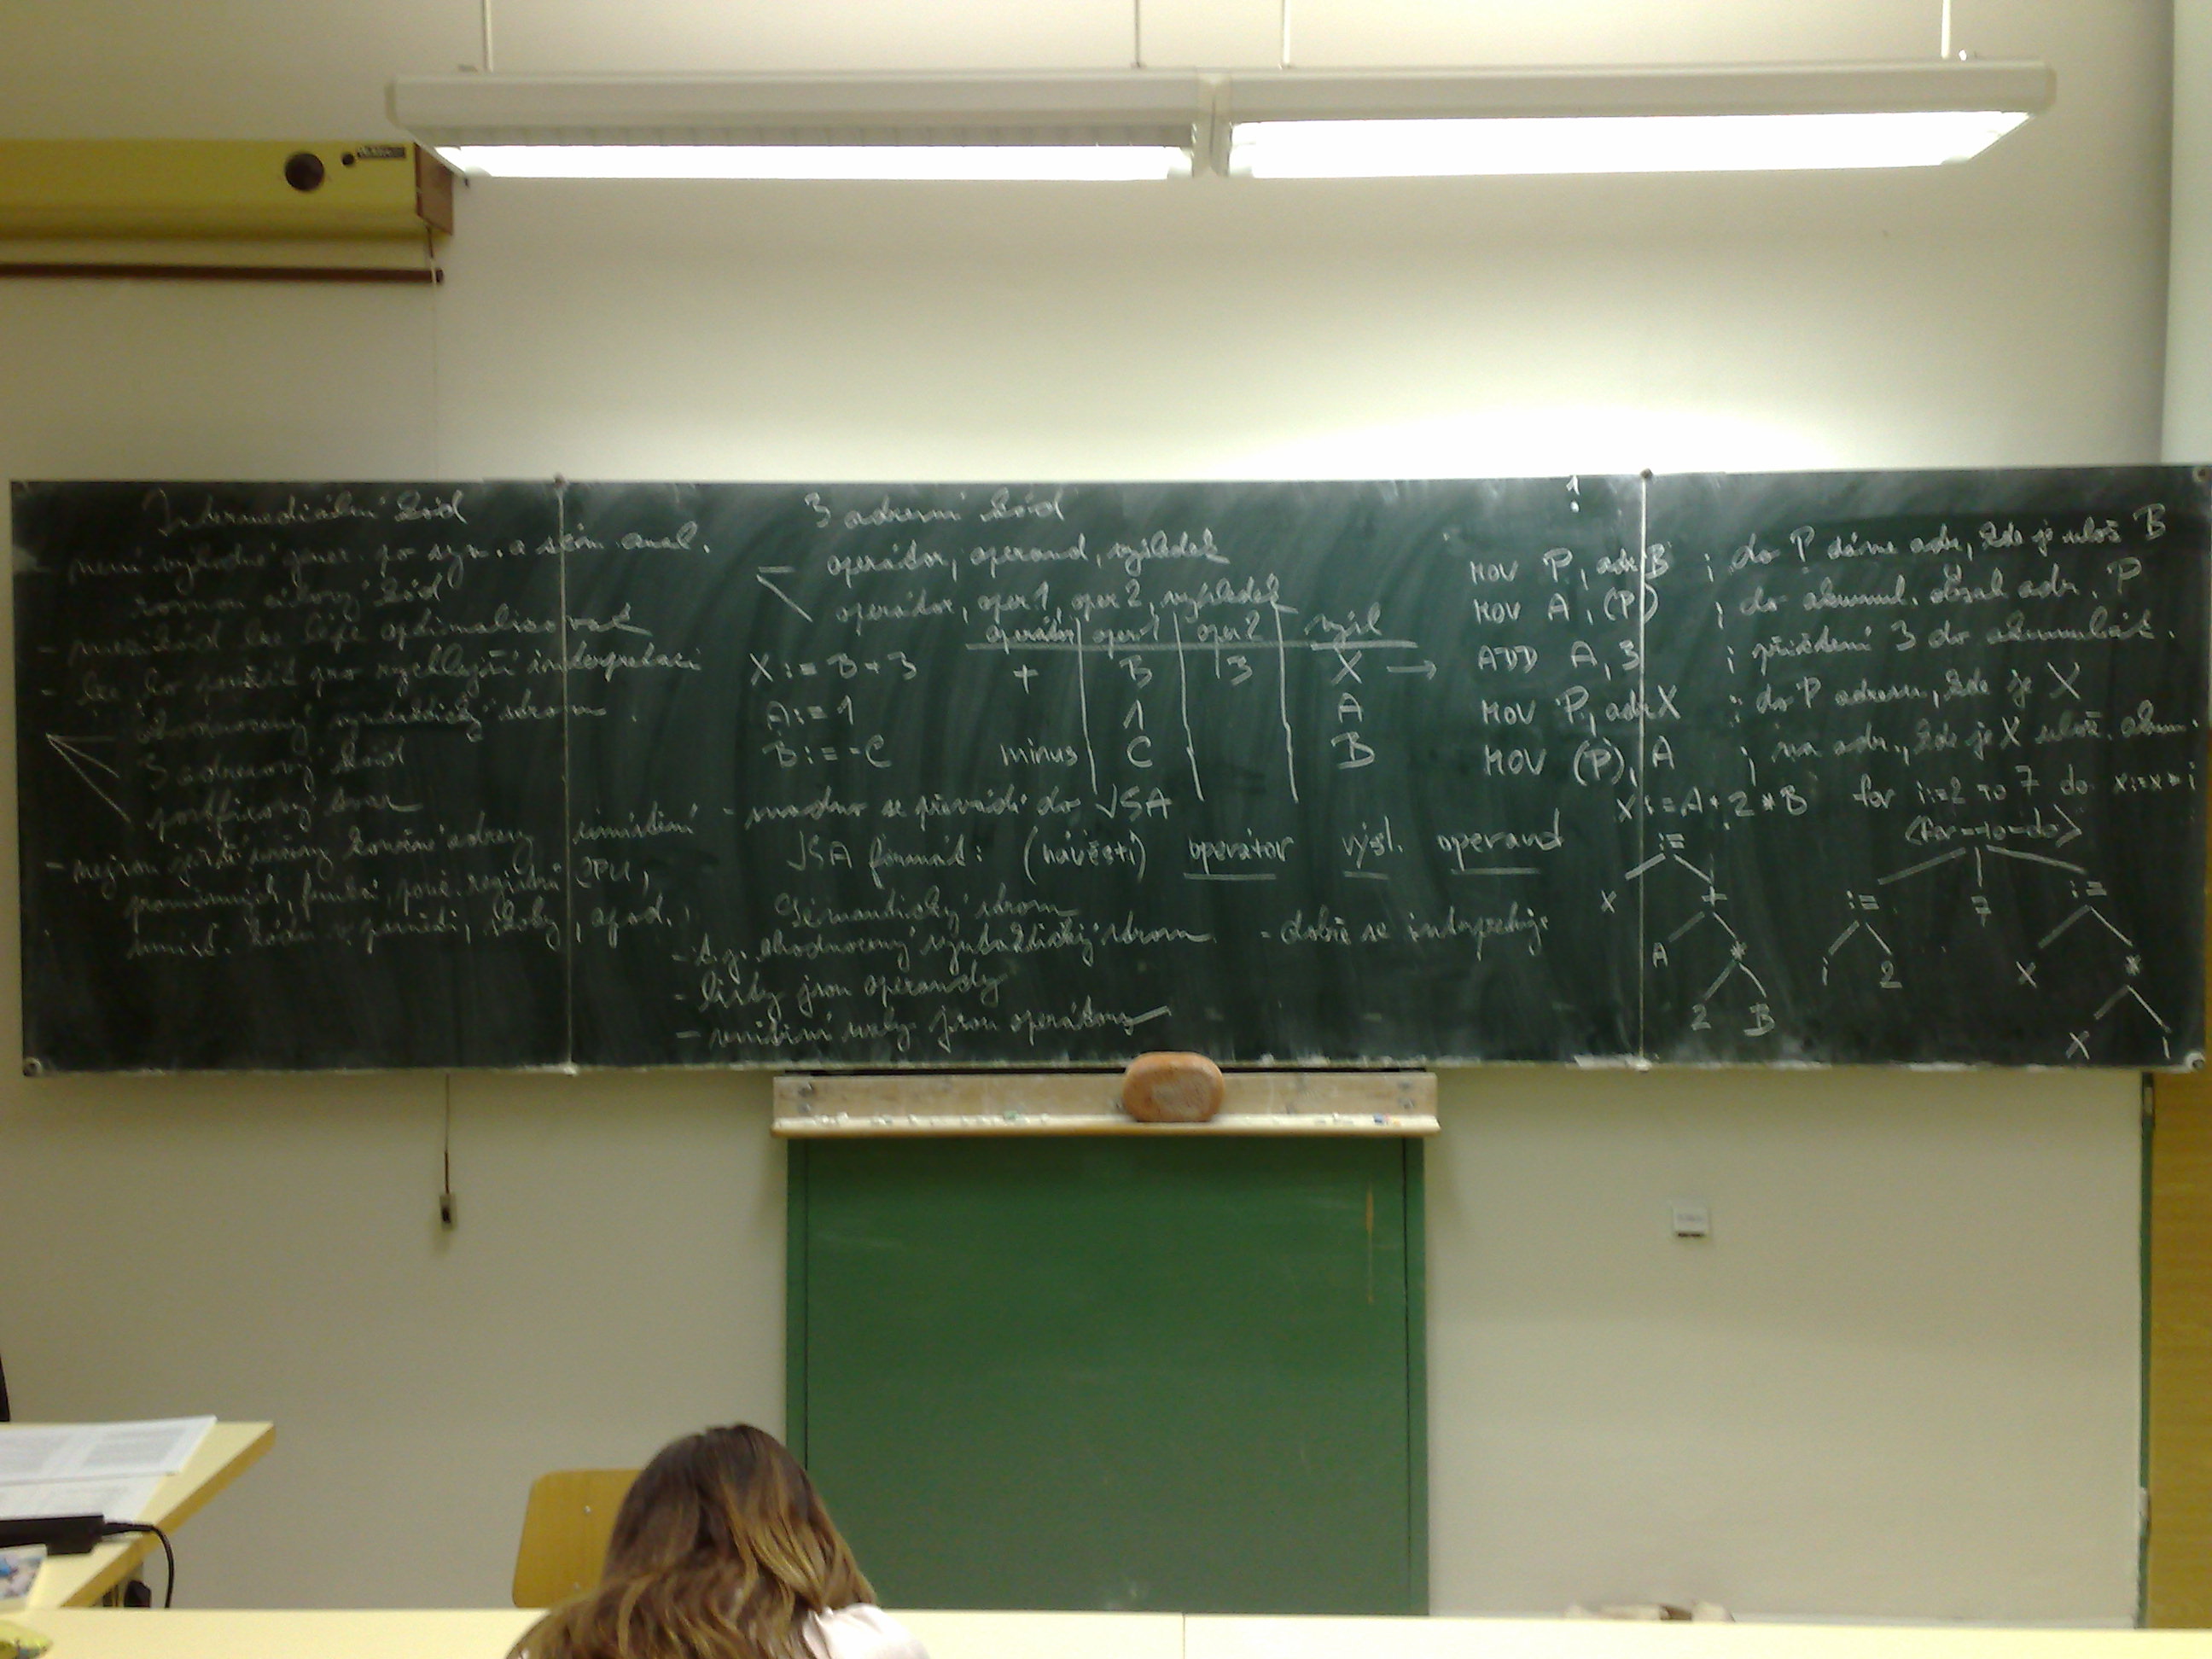 Intermediální kód
- není výhodné gener. po syn. a sém. anal.
rovnou cílový kód
- mezikód lze lépe optimalizovat
- lze ho použít pro rychlejší interpretaci
ohodnocený syntaktický strom
3 adresový kód
postfixový tvar
- nejsou ještě určeny konečné adresy umístění
proměnných, funkcí, použ. registrů CPU,
umíst. kódu v paměti, skoky, apod.
3 adresní kód
operátor, operand, výsledek
operátor, oper 1, oper 2, výsledek
operátor oper 1 oper 2 výsl
X := B + 3 + B 3 X →
A := 1 1 A
B := -C minus C B
- snadno se převádí do JSA
JSA formát: (návěstí) operátor výsl. operand
Sémantický strom
- t.j. ohodnocený syntaktický strom - dobře se interpretuje
- listy jsou operandy
- vnitřní uzly jsou operátory
MOV P, adr B ; do P dáme adr, kde je ulož B
MOV A, (P) ; do akumul. obsah adr. P
ADD A, 3 ; přičtení 3 do akumulát.
MOV P, adr X ; do P adresu, kde je X
MOV (P), A ; na adr., kde je X ulož. akum.
X := A + 2 * B for i:=2 to 7 do x:=x*i
:= <for-to-do>
x + := 7 :=
A * i 2 x *
2 B x i